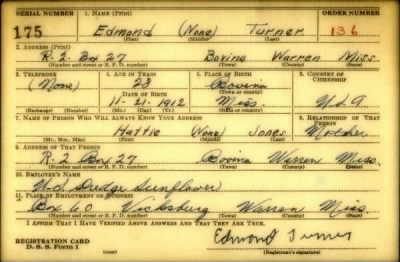 SERIAL NUMBER 1. NAME (Print) ORDER NUMBER
175 Edmond (None) Turner 136
(First) (Middle) (Last)
2. ADDRESS (Print)
R. 2 Box 27 Bovina Warren Miss
(Number and street or R. F. D. number) (Town) (County) (State)
3. TELEPHONE 4. AGE IN YEARS 5. PLACE OF BIRTH 6. COUNTRY OF CITIZENSHIP
(None) 28 Bovina
DATE OF BIRTH (Town or county)
11-21-1912 Miss. U.S.A
(Exchange) (Number) (Mo.) (Day) (Yr.) (State or country)
7. NAME OF PERSON WHO WILL ALWAYS KNOW YOUR ADDRESS 8. RELATIONSHIP OF THAT PERSON
Hattie (None) Jones Mother
(Mr., Mrs., Miss) (First) (Middle) (Last)
9. ADDRESS OF THAT PERSON
R. 2 Box 27 Bovina Warren Miss.
(Number and street or R. F. D. number) (Town) (County) (State)
10. EMPLOYER'S NAME
U.S. Dredge Sunflower
11. PLACE OF EMPLOYMENT OR BUSINESS
Box 60 Vicksburg Warren Miss.
(Number and street or R. F. D. number) (Town) (County) (State)
I AFFIRM THAT I HAVE VERIFIED ABOVE ANSWERS AND THAT THEY ARE TRUE.
REGISTRATION CARD Edmond Turner
D. S. S. Form 1 (Registrant's signature)